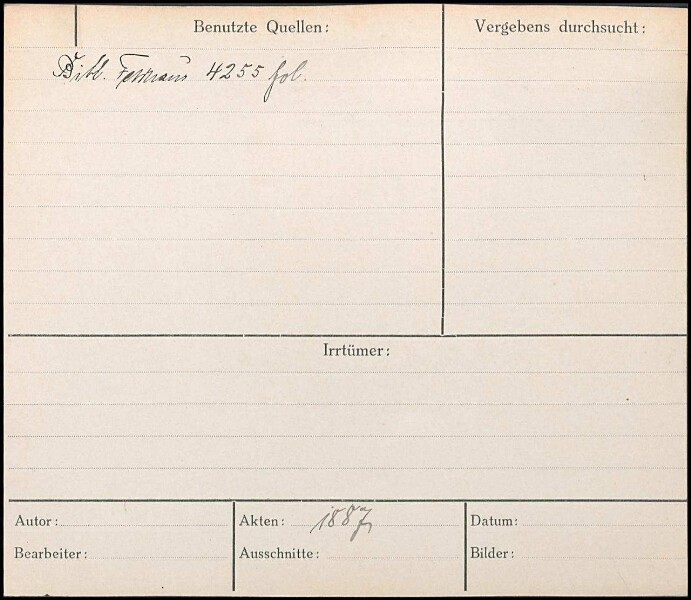 Benutzte Quellen: Vergebens durchsucht:
Bibl. 4255 fol.
Irrtümer:
Autor: Akten: 1887 Datum:
Bearbeiter: Ausschnitte: Bilder: